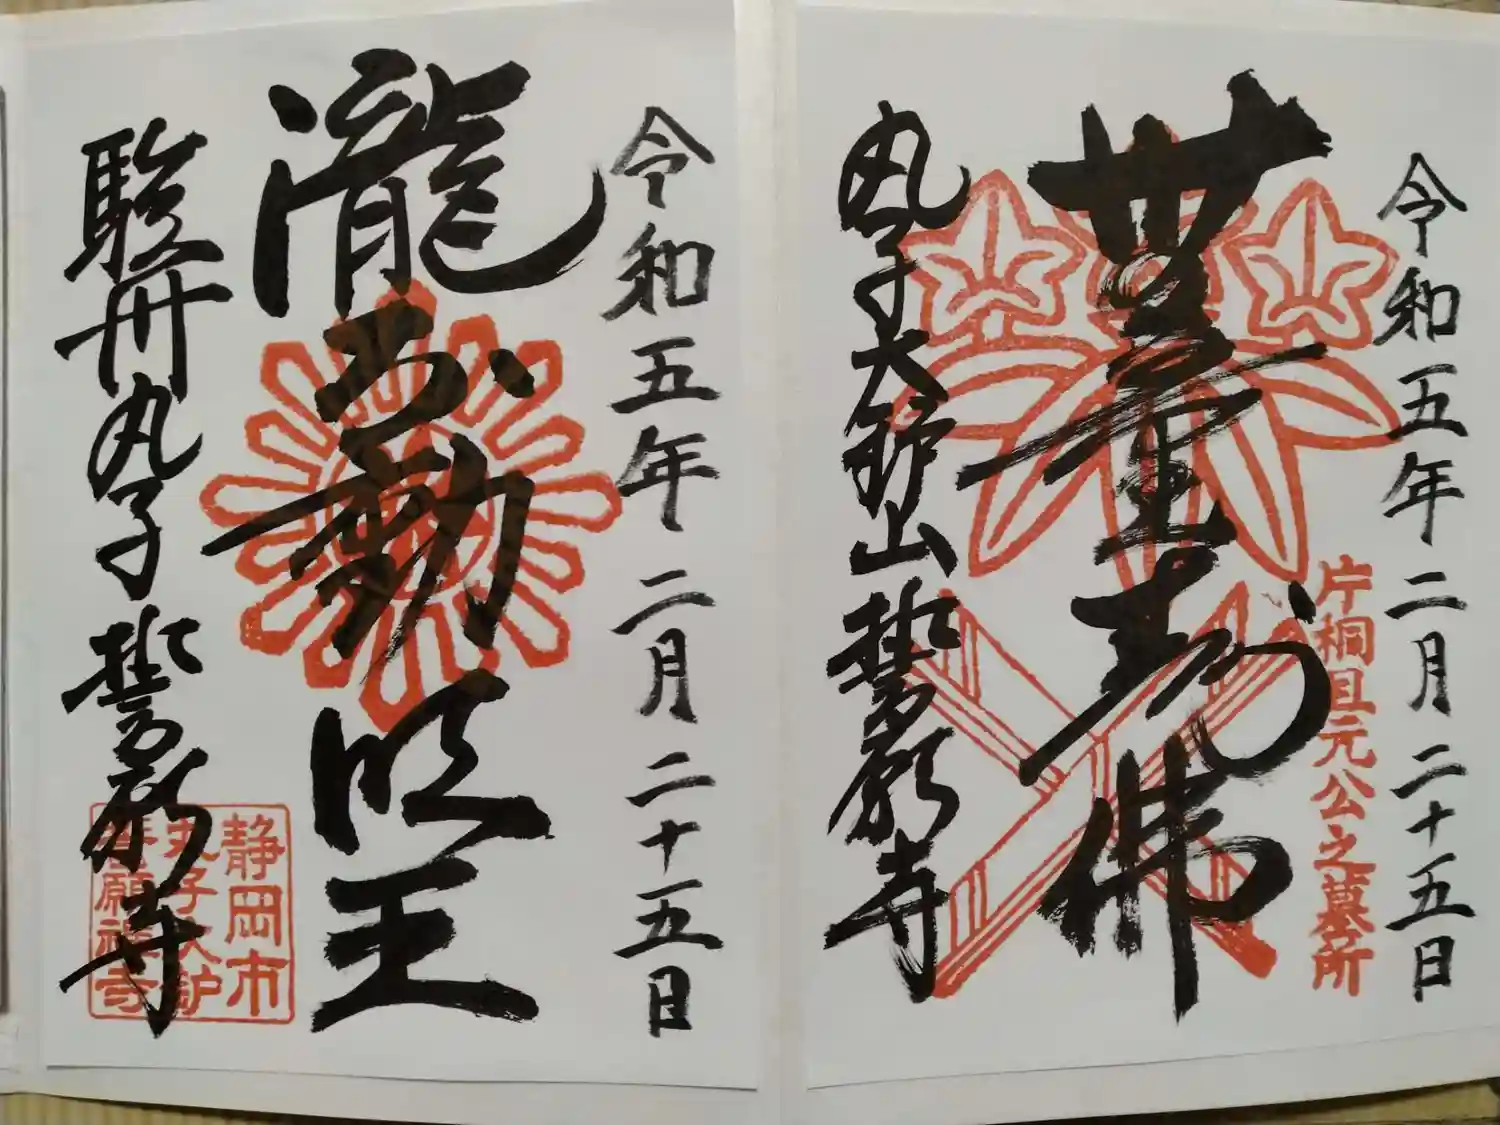 令和五年二月二十五日
片桐且元公之墓所
無量寿佛
丸子大鈩山誓願寺
令和五年二月二十五日
瀧不動明王
駿州丸子誓願寺
静岡市
丸子大鈩
誓願禅寺